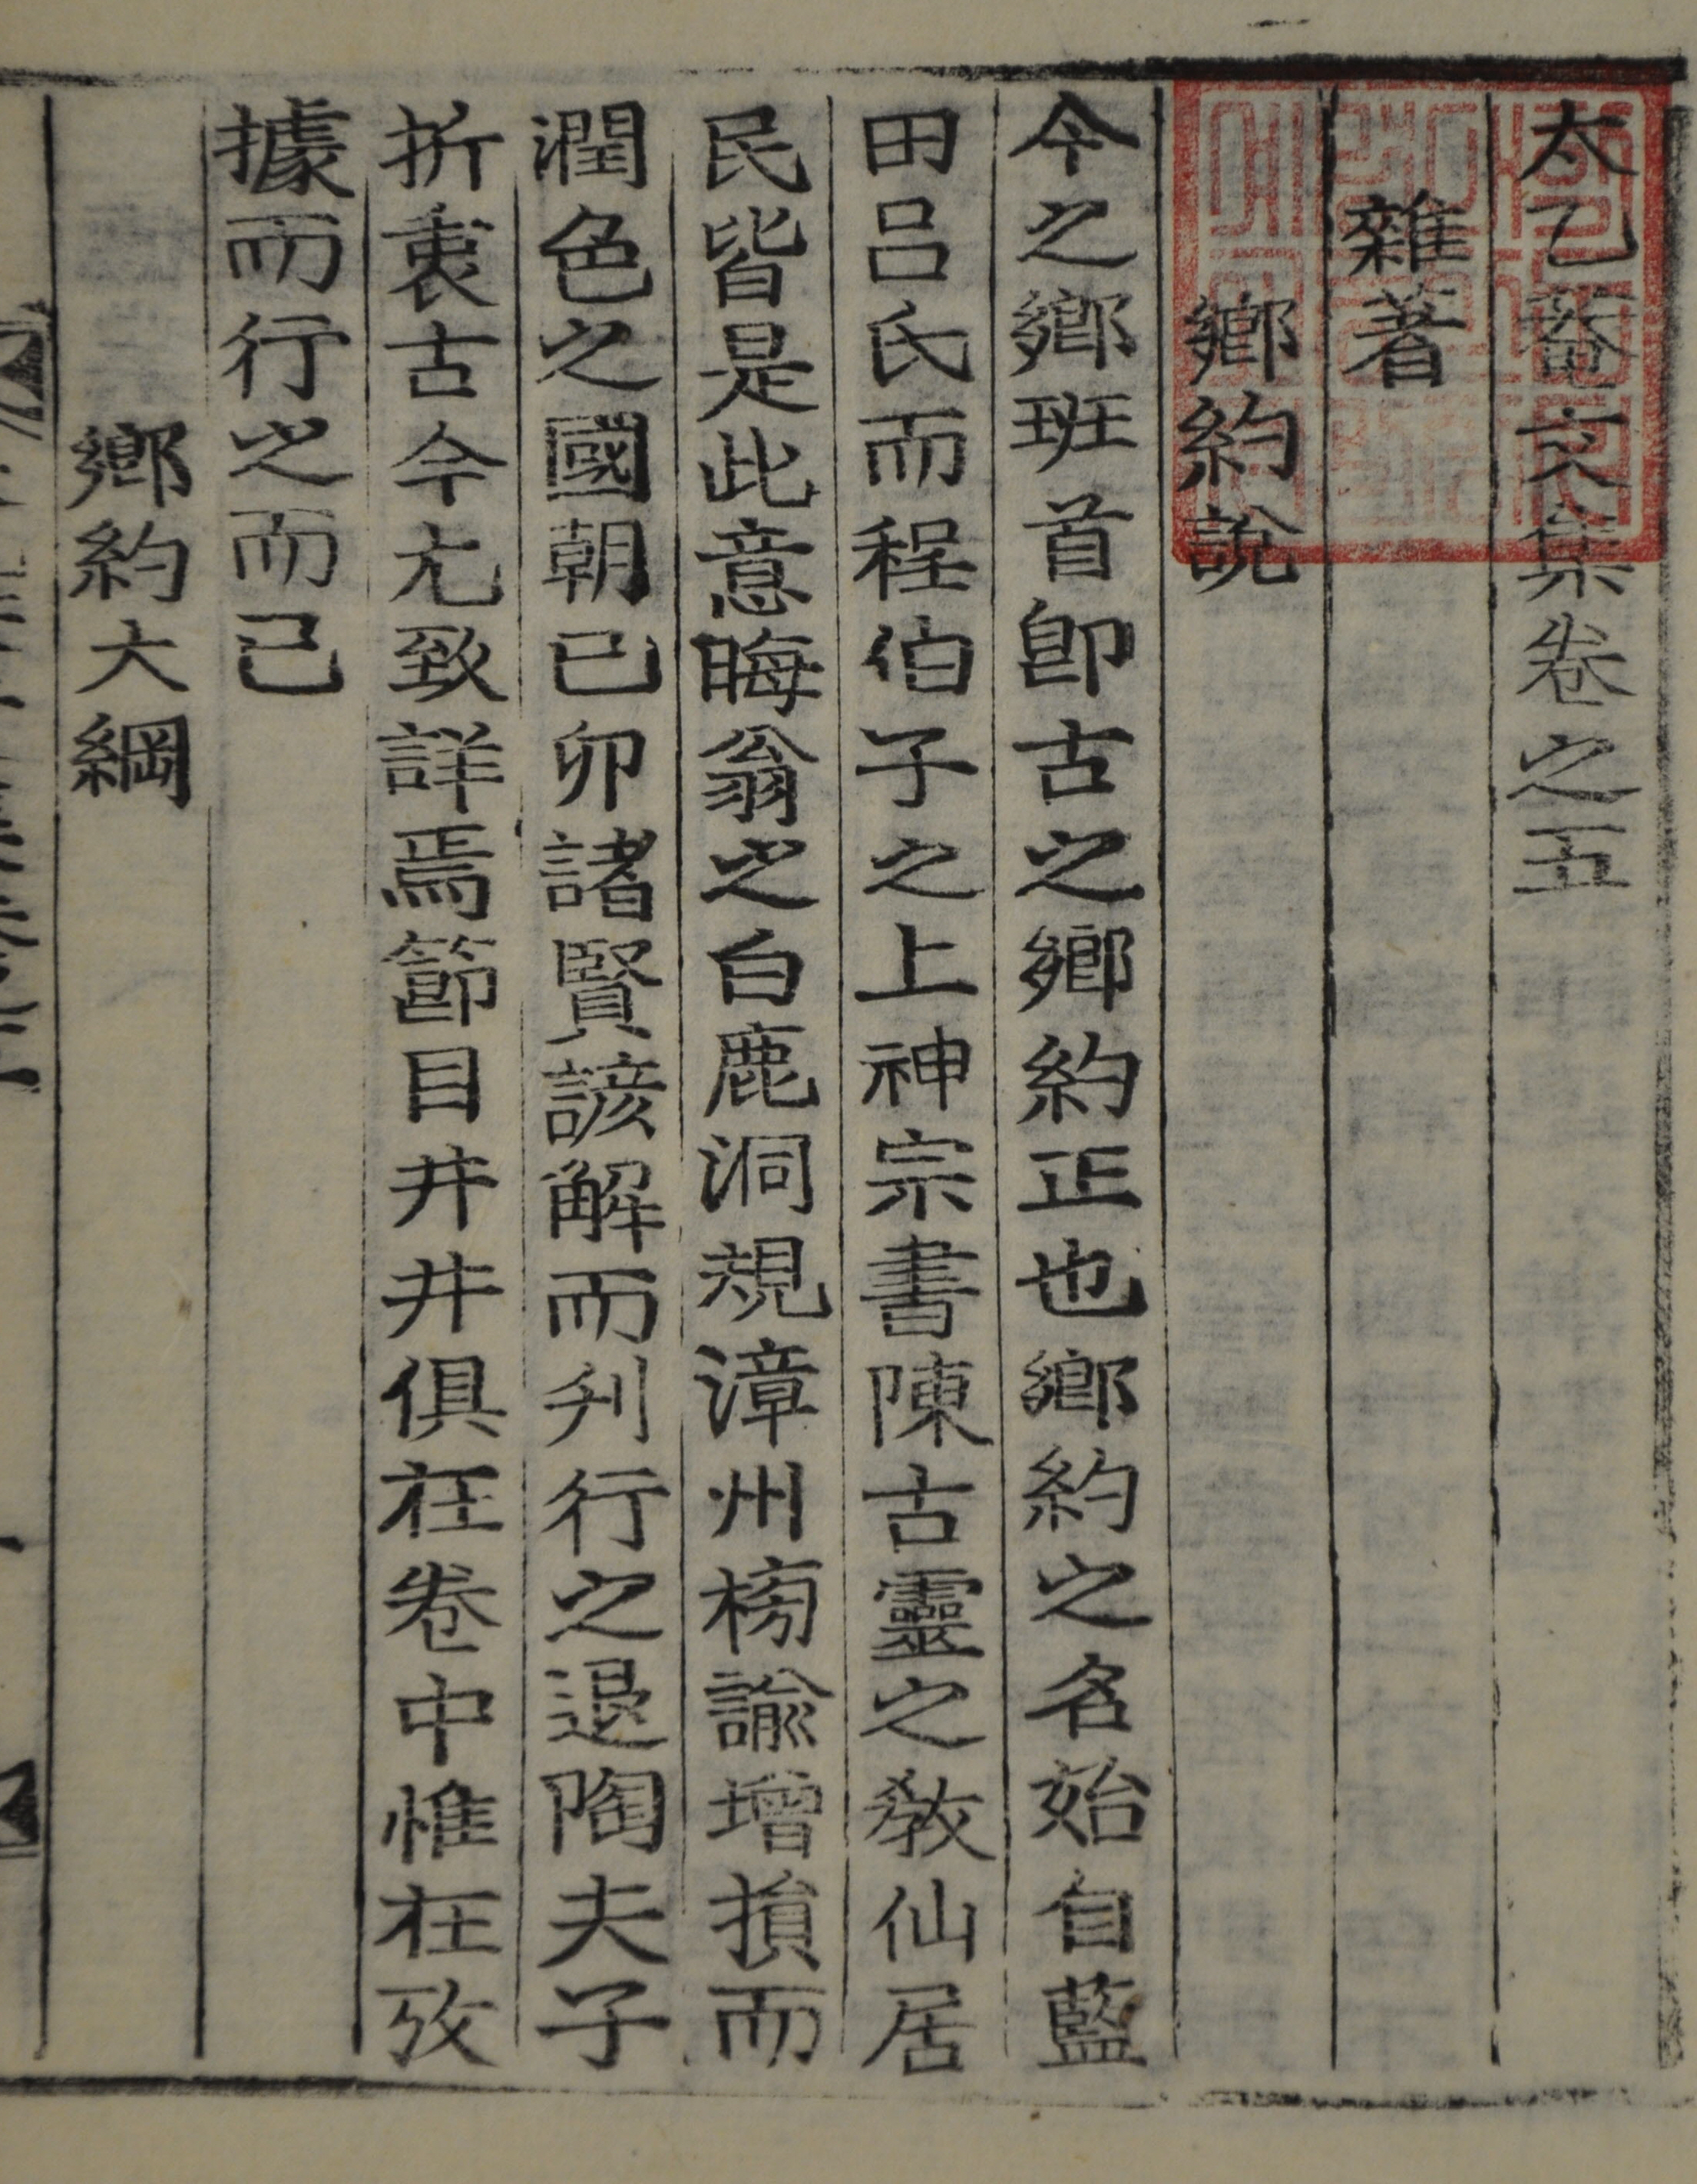 太乙菴文集卷之五
雜著
鄕約說
今之鄕班首卽古之鄕約正也鄕約之名始自藍
田呂氏而程伯子之上神宗書陳古靈之敎仙居
民皆是此意晦翁之白鹿洞規漳州榜諭增損而
潤色之國朝已卯諸賢諺解而刋行之退陶夫子
折衷古今尤致詳焉節目井井俱在卷中惟在攷
據而行之而已
鄕約大綱